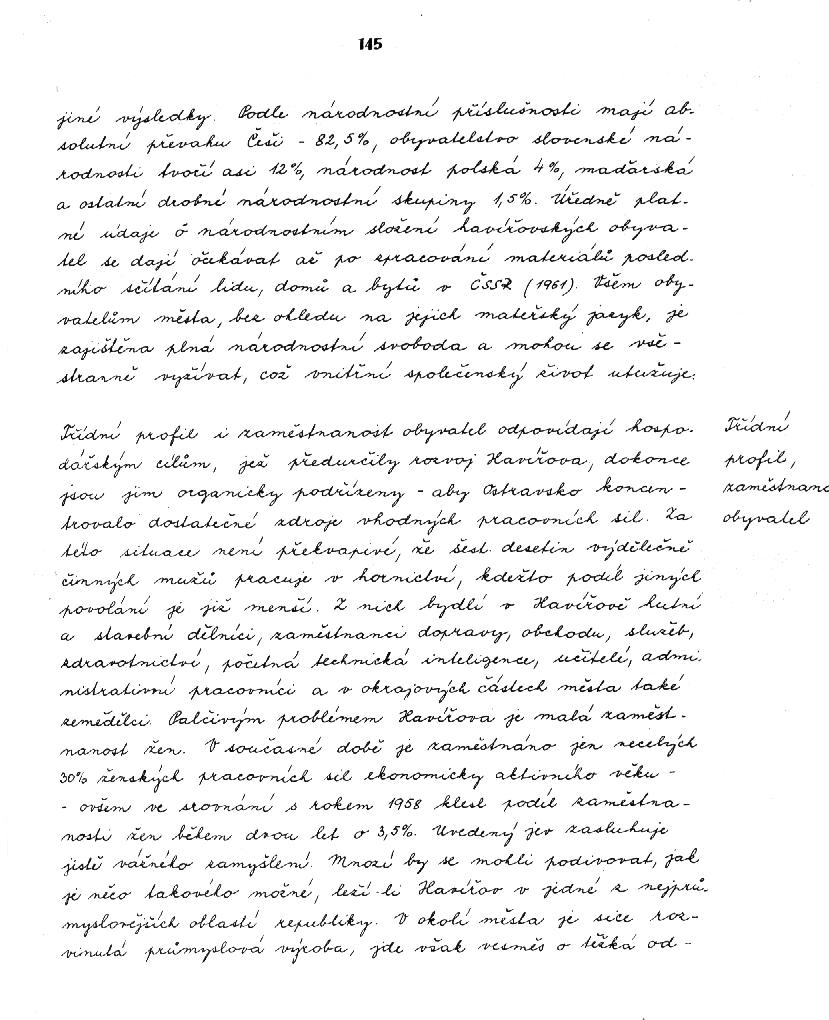 145
jiné výsledky. Podle národnostní příslušnosti mají ab-
solutní převahu Češi - 82,5%, obyvatelstvo slovenské ná-
rodnosti tvoří asi 12%, národnost polská 4%, maďarská
a ostatní drobné národnostní skupiny 1,5%. Úředně plat-
né údaje o národnostním složení havířovských obyva-
tel se dají očekávat až po zpracování materiálů posled-
ního sčítání lidu, domů a bytů v ČSSR (1961). Všem oby-
vatelům města, bez ohledu na jejich mateřský jazyk, je
zajištěna plná národnostní svoboda a mohou se vše-
stranně vyžívat, což vnitřní společenský život utužuje.
Třídní profil i zaměstnanost obyvatel odpovídají hospo-
dářským cílům, jež předurčily rozvoj Havířova, dokonce
jsou jim organicky podřízeny - aby Ostravsko koncen-
trovalo dostatečné zdroje vhodných pracovních sil. Za
této situace není překvapivé, že šest desetin výdělečně
činných mužů pracuje v hornictví, kdežto podíl jiných
povolání je již menší. Z nich bydlí v Havířově hutní
a stavební dělníci, zaměstnanci dopravy, obchodu, služeb,
zdravotnictví, početná technická inteligence, učitelé, admi-
nistrativní pracovníci a v okrajových částech města také
zemědělci. Palčivým problémem Havířova je malá zaměst-
nanost žen. V současné době je zaměstnáno jen necelých
30% ženských pracovních sil ekonomicky aktivního věku -
- ovšem ve srovnání s rokem 1958 klesl podíl zaměstna-
nosti žen během dvou let o 3,5%. Uvedený jev zasluhuje
jistě vážného zamyšlení. Mnozí by se mohli podivovat, jak
je něco takového možné, leží-li Havířov v jedné z nejprů-
myslovějších oblastí republiky. V okolí města je sice roz-
vinutá průmyslová výroba, jde však vesměs o těžká od-
Třídní
profil,
zaměstnanc
obyvatel